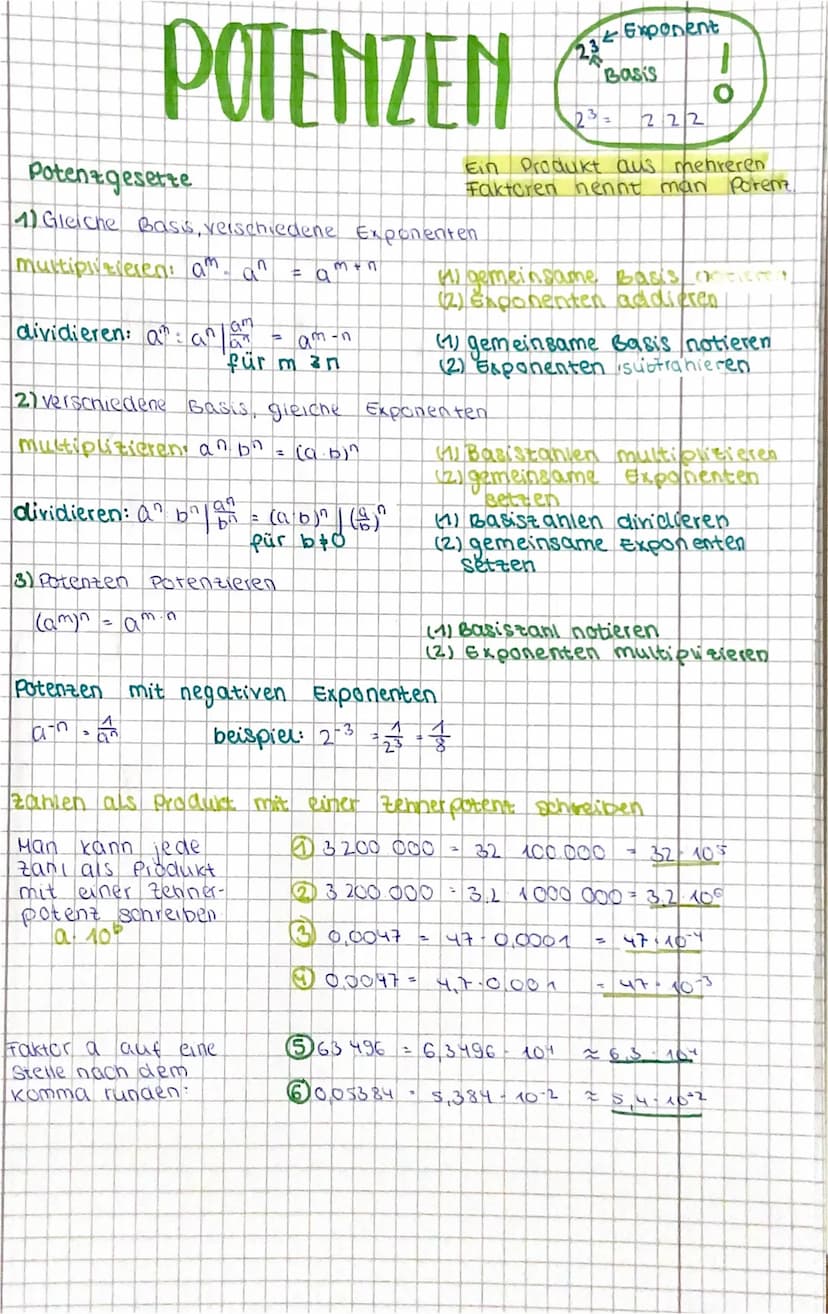 POTENZEN
2³ ← Exponent
Basis
!
2³ = 2 2 2
Ein Produkt aus mehreren
Faktoren nennt man Potenz
Potenzgesetze
1) Gleiche Basis, verschiedene Exponenten
multiplizieren: aᵐ · aⁿ = aᵐ⁺ⁿ
(1) gemeinsame Basis notieren
(2) Exponenten addieren
dividieren: aᵐ : aⁿ | aᵐ/aⁿ = aᵐ⁻ⁿ
für m ≥ n
(1) gemeinsame Basis notieren
(2) Exponenten subtrahieren
2) verschiedene Basis, gleiche Exponenten
multiplizieren: aⁿ bⁿ = (a·b)ⁿ
(1) Basiszahlen multiplizieren
(2) gemeinsame Exponenten
setzen
dividieren: aⁿ bⁿ | aⁿ/bⁿ = (a:b)ⁿ | (a/b)ⁿ
für b≠0
(1) Basiszahlen dividieren
(2) gemeinsame Exponenten
setzen
3) Potenzen Potenzieren
(aᵐ)ⁿ = aᵐ·ⁿ
(1) Basiszahl notieren
(2) Exponenten multiplizieren
Potenzen mit negativen Exponenten
a⁻ⁿ = 1/aⁿ beispiel: 2⁻³ = 1/2³ = 1/8
Zahlen als Produkt mit einer Zehnerpotenz schreiben
Man kann jede
Zahl als Produkt
mit einer Zehner-
potenz schreiben
a · 10ᵇ
① 3 200 000 = 32 100.000 = 32 · 10⁵
② 3 200.000 = 3,2 1 000 000 = 3,2 · 10⁶
③ 0,0047 = 47 · 0,0001 = 47 · 10⁻⁴
④ 0,0047 = 4,7 · 0,001 = 47 · 10⁻³
Faktor a auf eine
Stelle nach dem
Komma runden:
⑤ 63 496 = 6,3496 · 10⁴ ≈ 6,3 · 10⁴
⑥ 0,05384 = 5,384 · 10⁻² ≈ 5,4 · 10⁻²